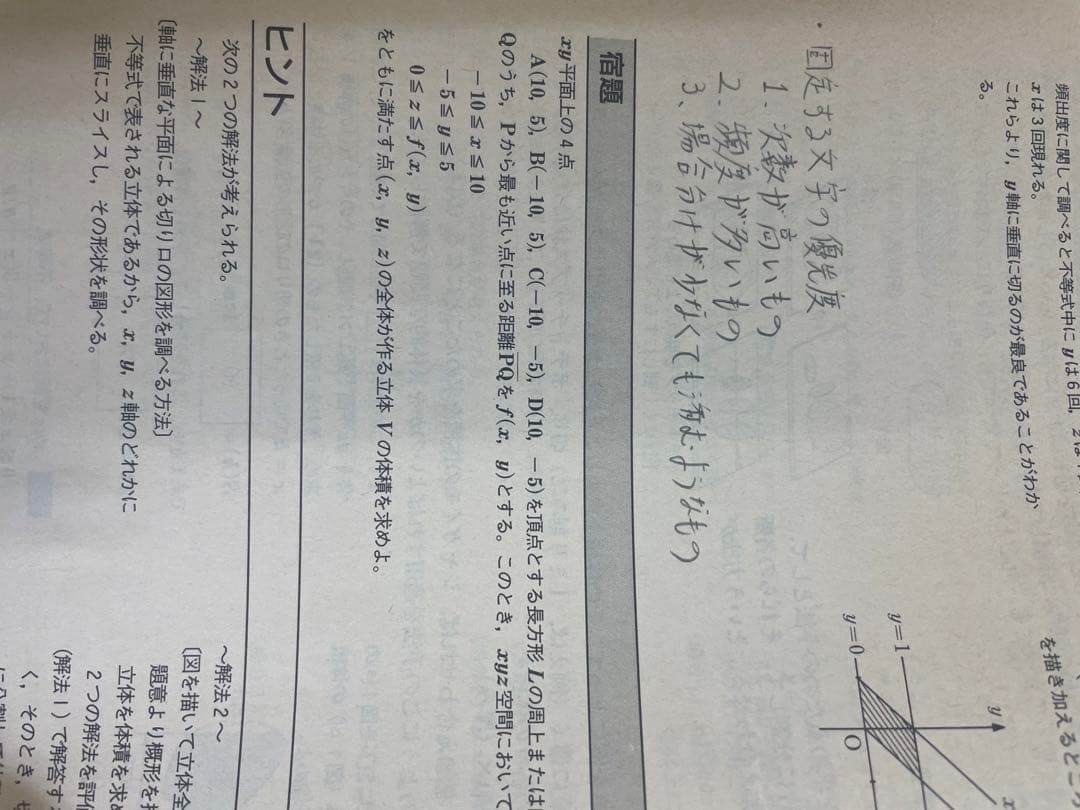 頻出度に関して調べると不等式中にyは6回,
xは3回現れる。
これらより, y軸に垂直に切るのが最良であることがわか
る。
・固定する文字の優先度
1. 次数が高いもの
2. 頻度が多いもの
3. 場合分けが少なくても済むようなもの
を描き加えると
y
y=1
y=0
O
宿題
xy平面上の4点
A(10, 5), B(−10, 5), C(−10, −5), D(10, −5)を頂点とする長方形Lの周上または
Qのうち, Pから最も近い点に至る距離PQをf(x, y)とする。このとき, xyz空間において
−10≦x≦10
−5≦y≦5
0≦z≦f(x, y)
をともに満たす点(x, y, z)の全体が作る立体Vの体積を求めよ。
ヒント
次の2つの解法が考えられる。
〜解法1〜
〔軸に垂直な平面による切り口の図形を調べる方法〕
不等式で表される立体であるから, x, y, z軸のどれかに
垂直にスライスし, その形状を調べる。
〜解法2〜
〔図を描いて立体全
題意より概形を
立体を体積を求め
2つの解法を評価
(解法1)で解答す
く, そのとき,